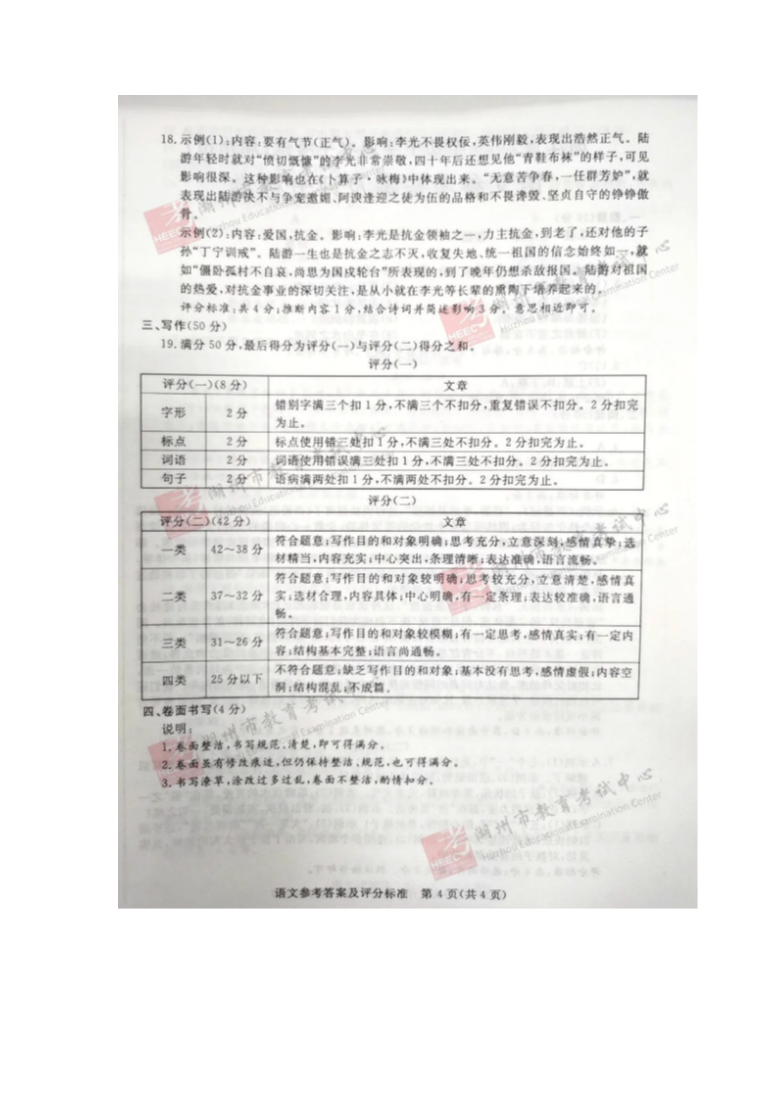 18. 示例(1):内容:要有气节(正气)。影响:李光不畏权佞,英伟刚毅,表现出浩然正气。陆
游年轻时就对“愤切慨慷”的李光非常崇敬,四十年后还想见他“青鞋布袜”的样子,可见
影响很深。这种影响也在《卜算子·咏梅》中体现出来。“无意苦争春,一任群芳妒”,就
表现出陆游决不与争宠邀媚、阿谀逢迎之徒为伍的品格和不畏谗毁、坚贞自守的铮铮傲
骨。
示例(2):内容:爱国,抗金。影响:李光是抗金领袖之一,力主抗金,到老了,还对他的子
孙“丁宁训戒”。陆游一生也是抗金之志不灭,收复失地、统一祖国的信念始终如一,就
如“僵卧孤村不自哀,尚思为国戍轮台”所表现的,到了晚年仍想杀敌报国。陆游对祖国
的热爱,对抗金事业的深切关注,是从小就在李光等长辈的熏陶下培养起来的。
评分标准:共4分;推断内容1分,结合诗词并简述影响3分。意思相近即可。
三、写作(50分)
19. 满分50分,最后得分为评分(一)与评分(二)得分之和。
评分(一)
评分(一)(8分) 文章
字形 2分 错别字满三个扣1分,不满三个不扣分,重复错误不扣分。2分扣完
为止。
标点 2分 标点使用错三处扣1分,不满三处不扣分。2分扣完为止。
词语 2分 词语使用错误满三处扣1分,不满三处不扣分。2分扣完为止。
句子 2分 语病满两处扣1分,不满两处不扣分。2分扣完为止。
评分(二)
评分(二)(42分) 文章
一类 42～38分 符合题意;写作目的和对象明确;思考充分,立意深刻,感情真挚;选
材精当,内容充实;中心突出,条理清晰;表达准确,语言流畅。
二类 37～32分 符合题意;写作目的和对象较明确;思考较充分,立意清楚,感情真
实;选材合理,内容具体;中心明确,有一定条理;表达较准确,语言通
畅。
三类 31～26分 符合题意;写作目的和对象较模糊;有一定思考,感情真实;有一定内
容;结构基本完整;语言尚通畅。
四类 25分以下 不符合题意;缺乏写作目的和对象;基本没有思考,感情虚假;内容空
洞;结构混乱;不成篇。
四、卷面书写(4分)
说明:
1. 卷面整洁,书写规范、清楚,即可得满分。
2. 卷面虽有修改痕迹,但仍保持整洁、规范,也可得满分。
3. 书写潦草,涂改过多过乱,卷面不整洁,酌情扣分。
考 HEEC 湖州市教育考试中心
Huzhou Educational Examination Center
语文参考答案及评分标准 第4页(共4页)